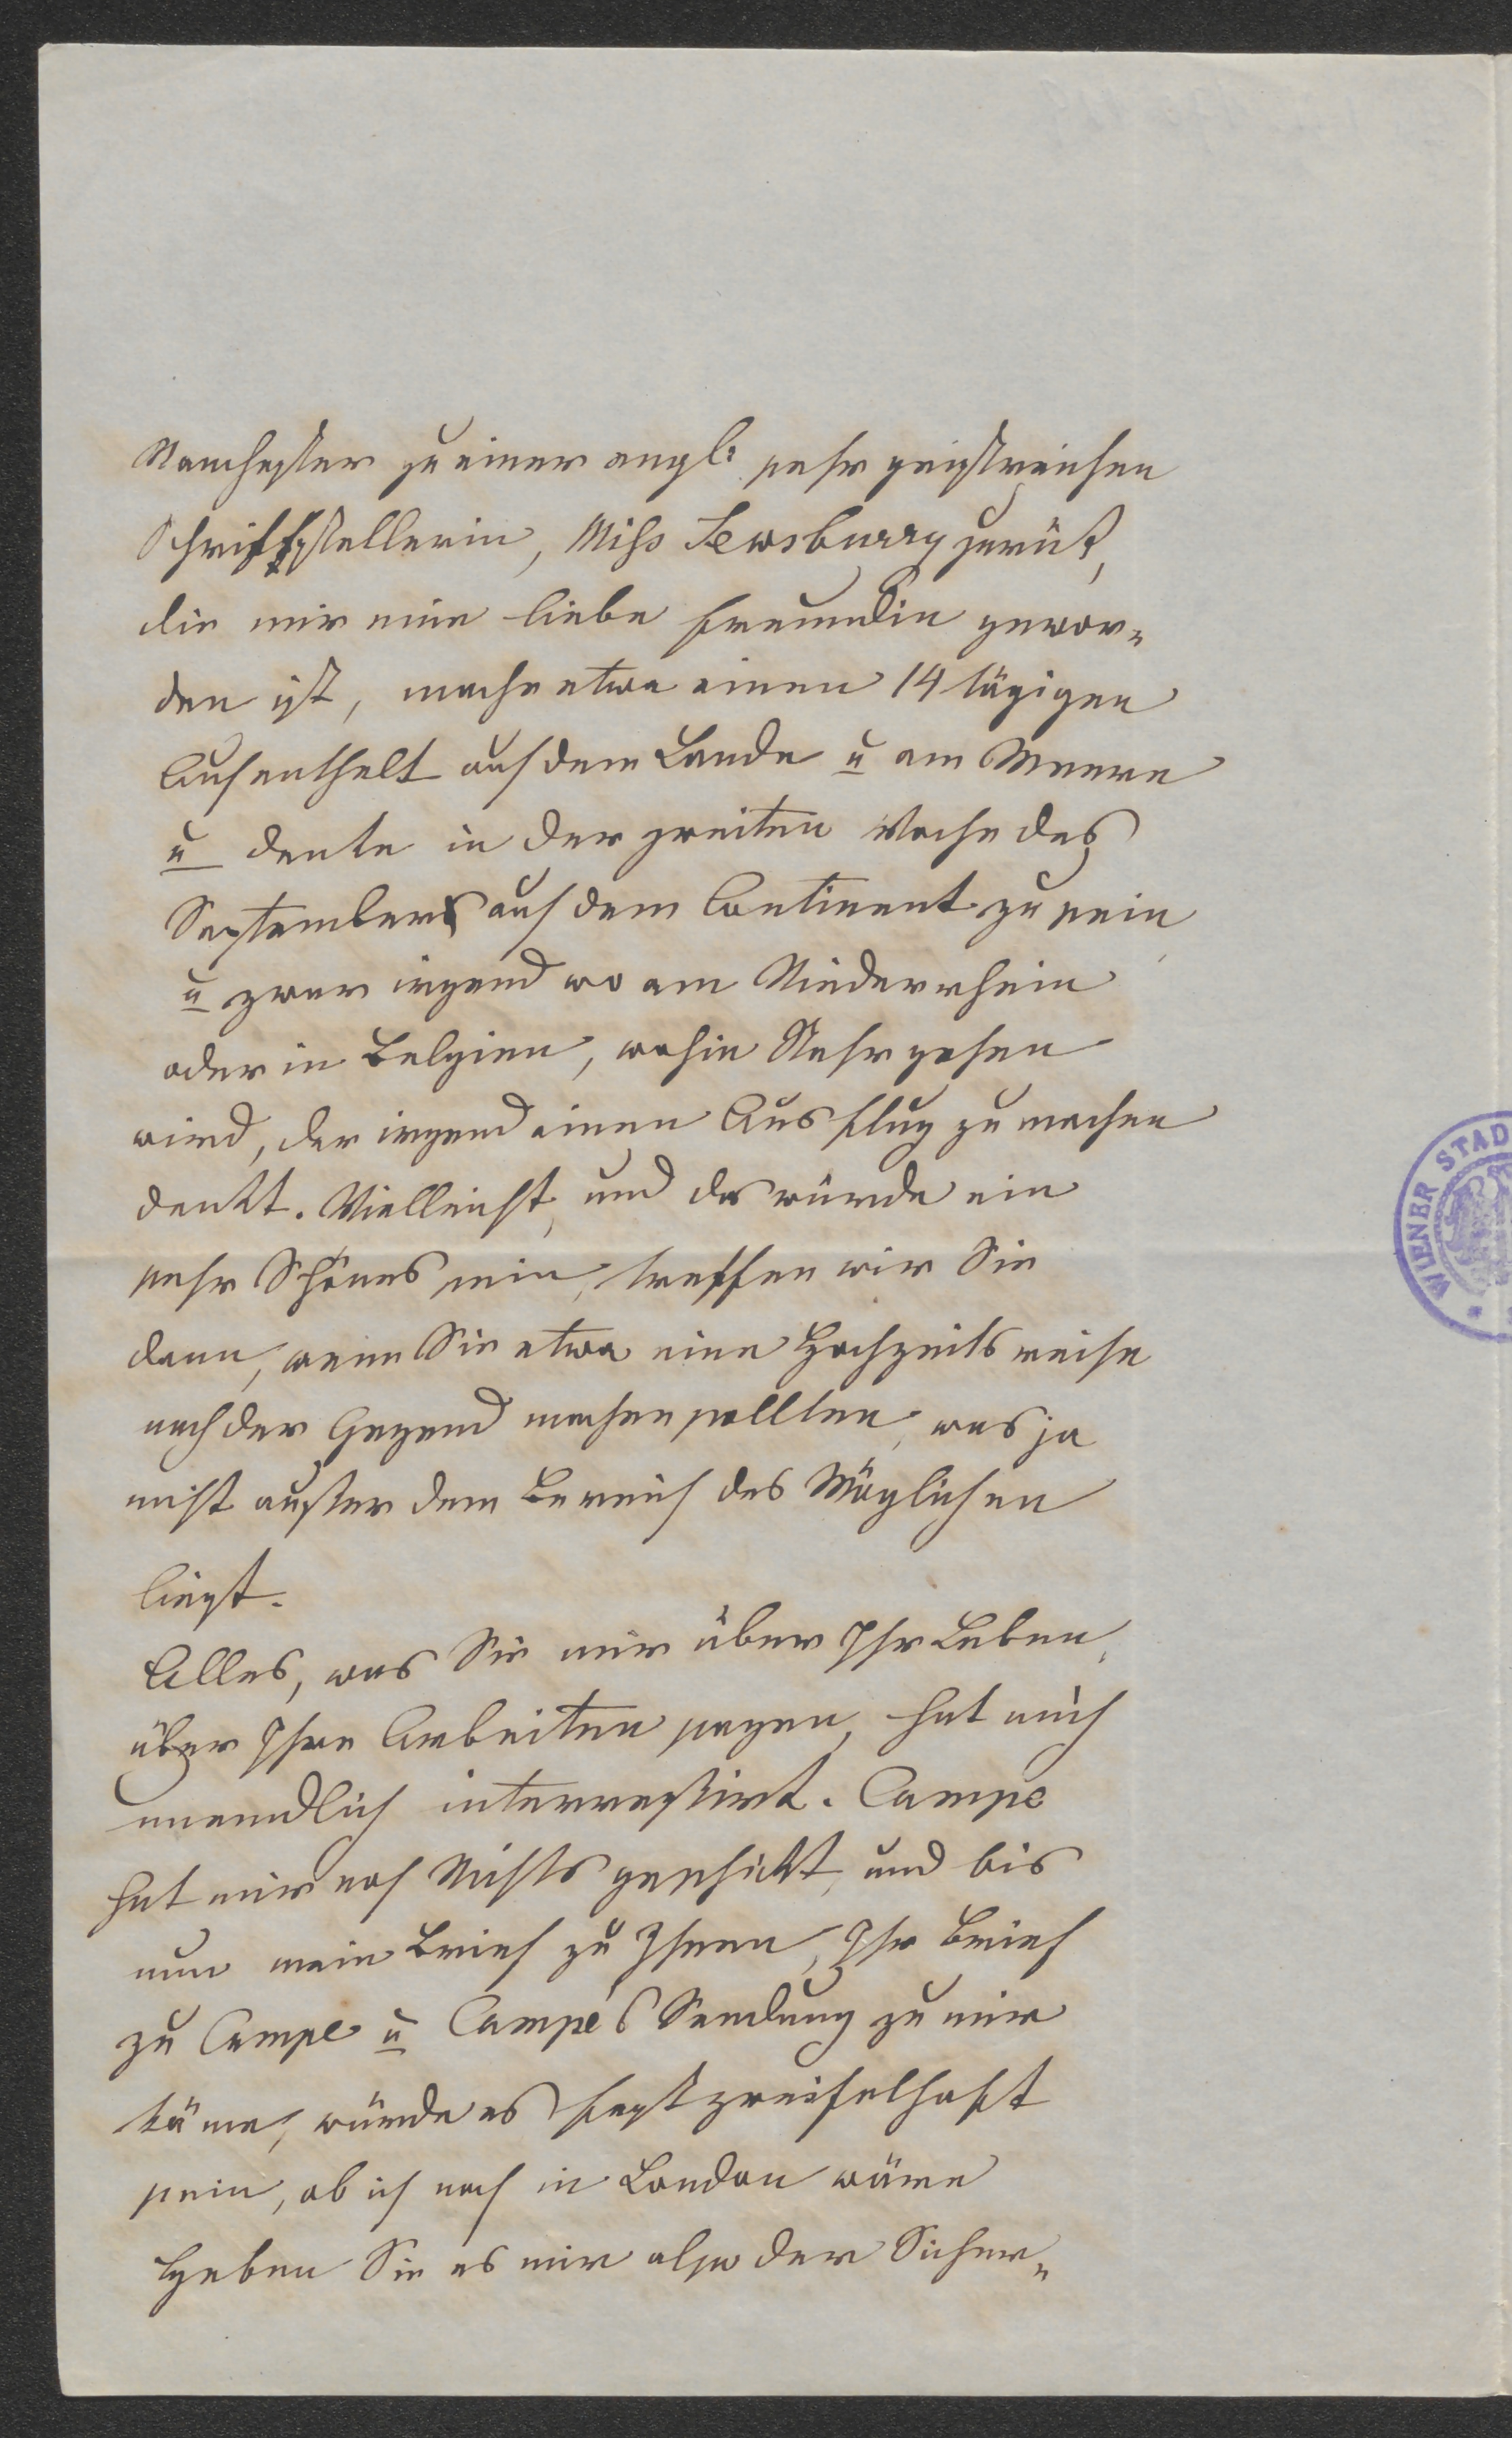 Manchester zu einer engl. sehr geistreichen
Schriftstellerin, Miss Jewsburry zurück,
die mir eine liebe Freundin gewor-
den ist, mache etwa einen 14 tägigen
Aufenthalt auf dem Lande u am Meere
u denke in der zweiten Woche des
Septembers auf dem Continent zu sein
u zwar irgend wo am Niederrhein
oder in Belgien, wohin Stahr gehen
wird, der irgend einen Ausflug zu machen
denkt. Vielleicht, und das würde ein
sehr Schönes sein, treffen wir Sie
dann, wenn Sie etwa eine Hochzeitsreise
nach der Gegend machen sollten, was ja
nicht außer dem Bereich des Möglichen
liegt.
Alles, was Sie mir über Ihr Leben,
über Ihre Arbeiten sagen, hat mich
unendlich interressirt. Campe
hat mir noch Nichts geschickt, und bis
nun mein Brief zu Ihnen, Ihr Brief
zu Campe u Campe's Sendung zu mir
käme, würde es fast zweifelhaft
sein, ob ich noch in London wäre
Geben Sie es mir also der Sicher-
WIENER STAD